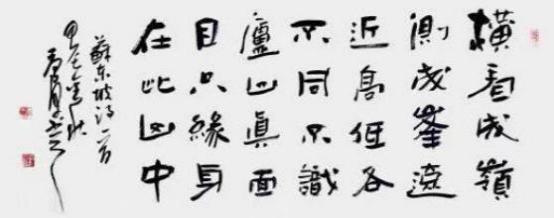 橫看成嶺
側成峯遠
近高低各
不同不識
廬山眞面
目只緣身
在此山中
蘇东坡诗一首